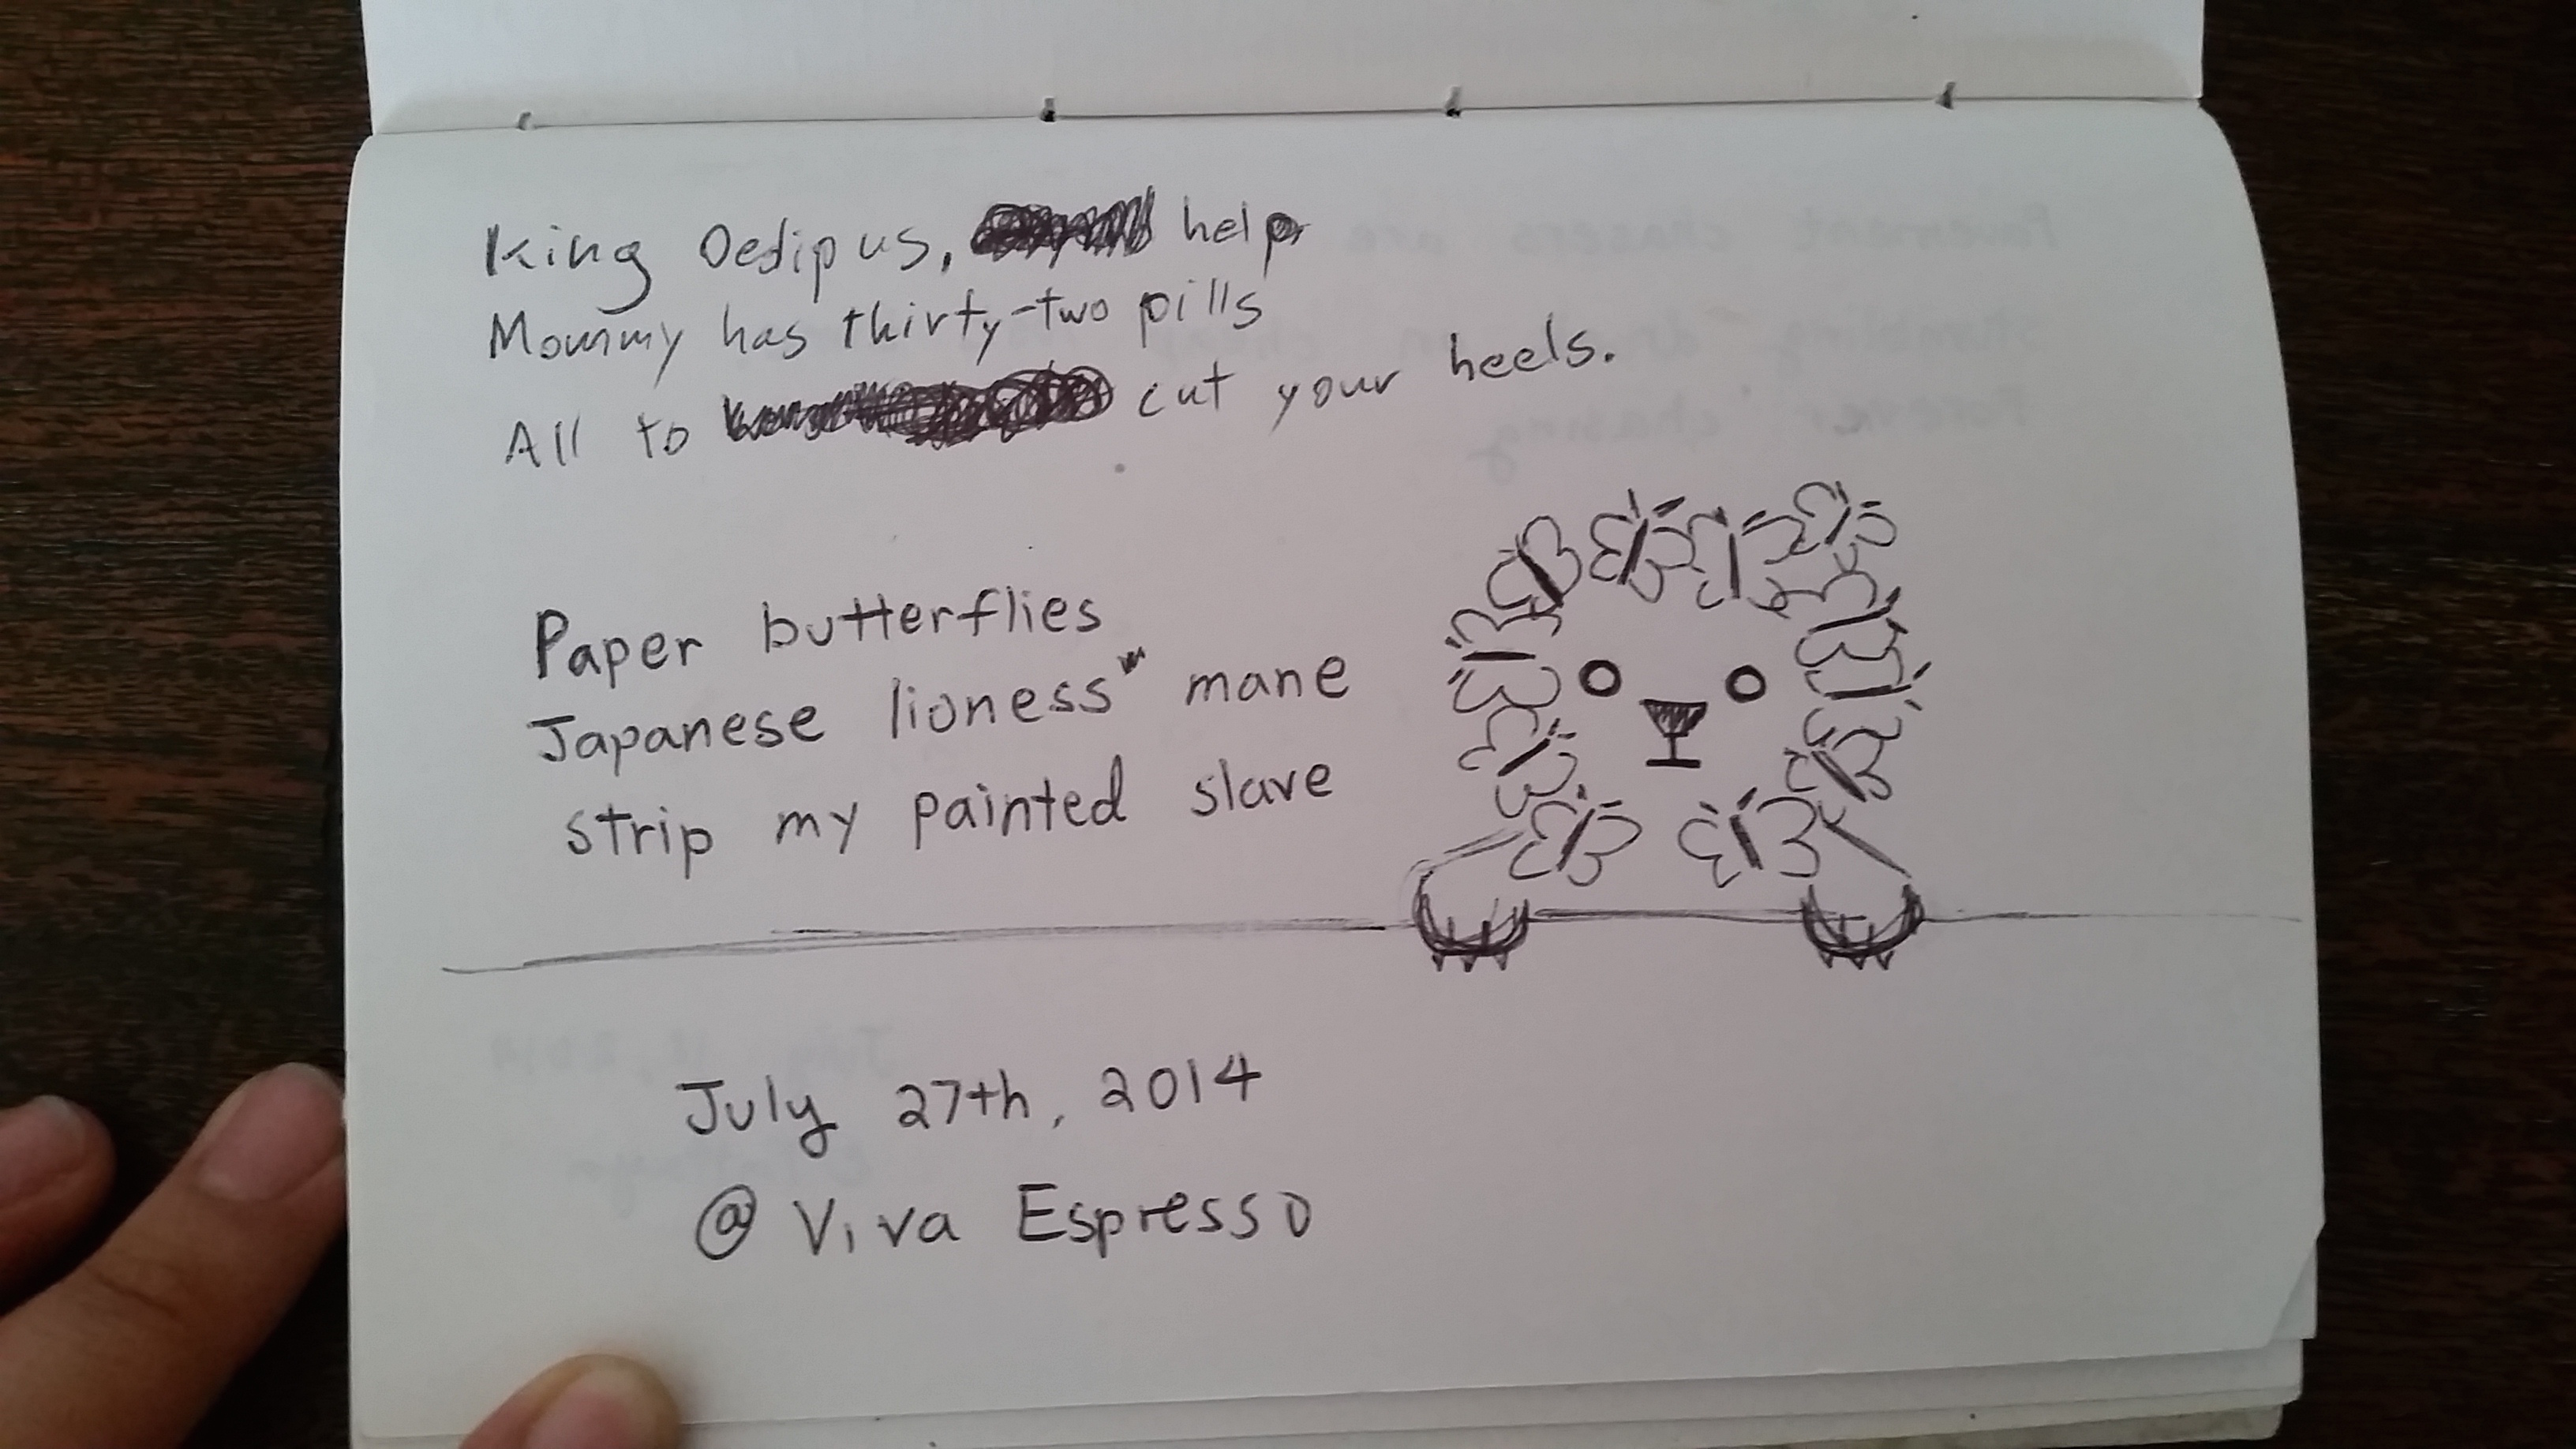 King Oedipus, help
Mommy has thirty-two pills
All to cut your heels.
Paper butterflies
Japanese lioness" mane
strip my painted slave
July 27th, 2014
@ Viva Espresso